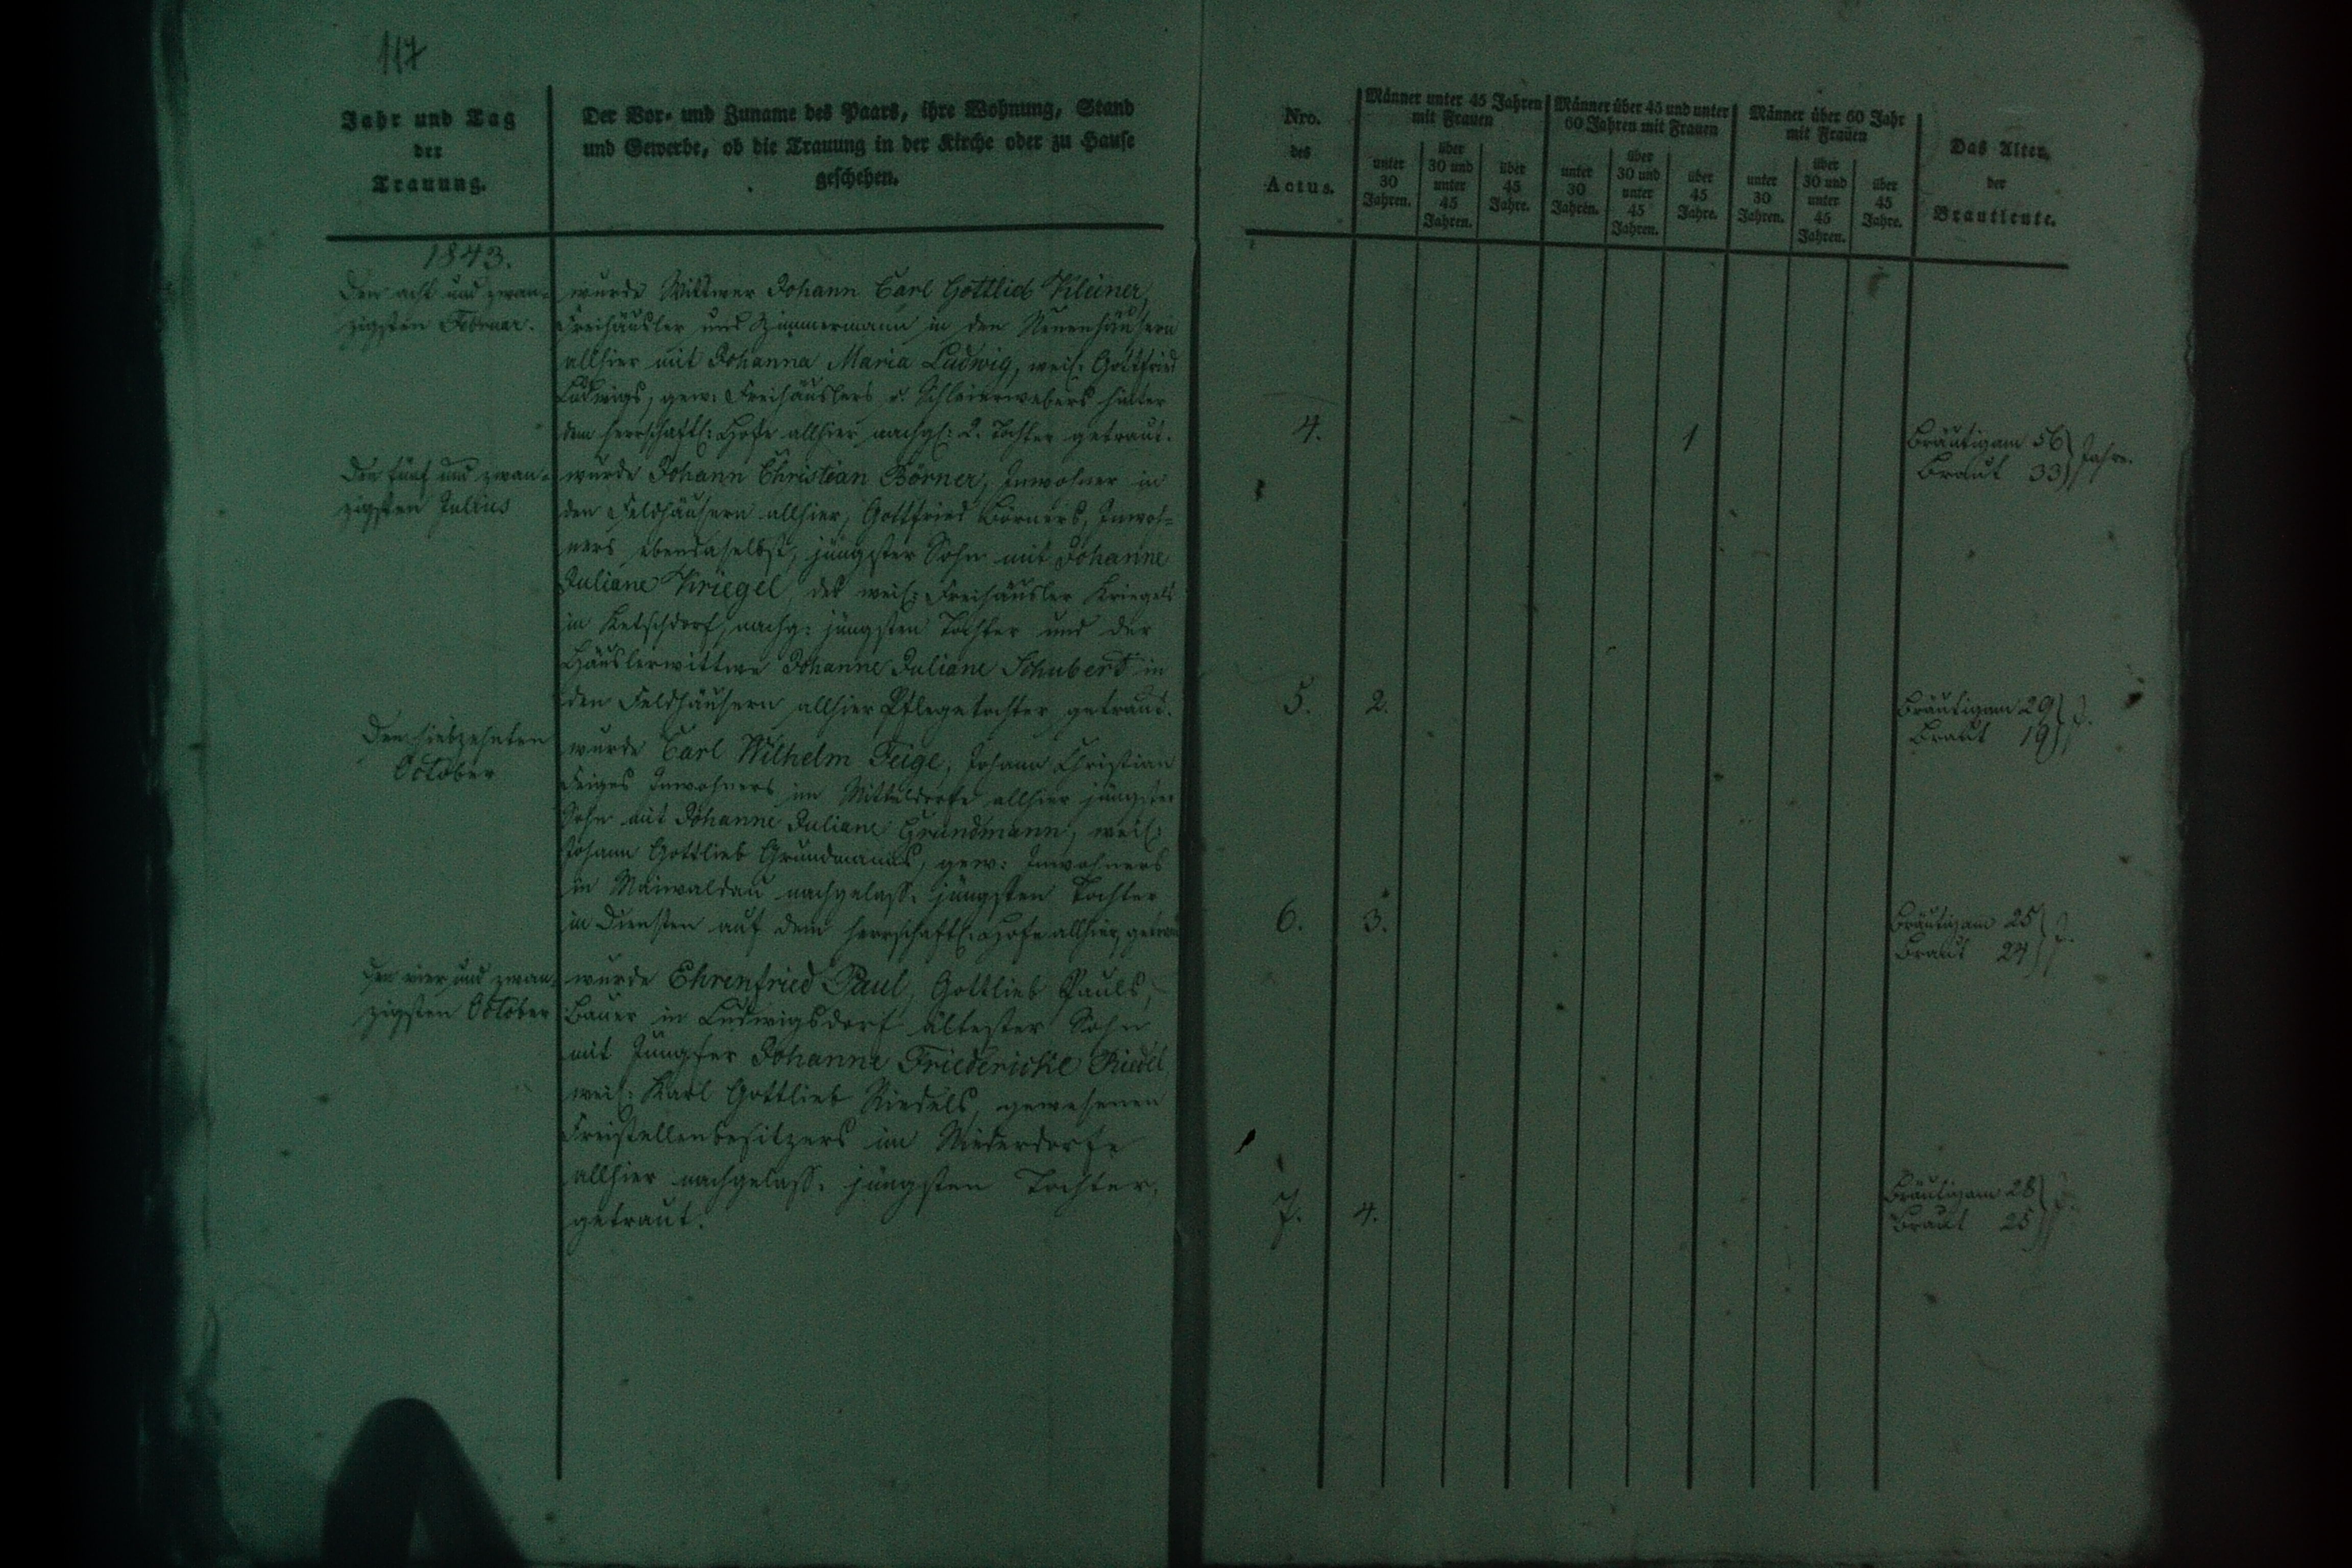 117
Jahr und Tag
der
Trauung.
Der Vor- und Zuname des Paars, ihre Wohnung, Stand
und Gewerbe, ob die Trauung in der Kirche oder zu Hause
geschehen.
1843.
Den acht und zwan-
zigsten Februar.
wurde Wittwer Johann Carl Gottlieb Kleiner,
Freihäusler und Zimmermann in den Neuenhäusern
allhier mit Johanna Maria Ludwig, weil: Gottfried
Ludwigs, gew: Freihäuslers u. Schleierwebers hinter
dem herrschaftl: Hofe allhier nachgl: 2. Tochter getraut.
Den fünf und zwan-
zigsten Julius
wurde Johann Christian Börner, Inwohner in
den Feldhäusern allhier, Gottfried Börners, Inwoh-
ners ebendaselbst, jüngster Sohn mit Johanne
Juliane Kriegel, des weil: Freihäusler Kriegels
in Ketschdorf, nachg: jüngsten Tochter und der
Häuslerwittwe Johanne Juliane Schubert in
den Feldhäusern allhier Pflegetochter getraut.
Den siebzehnten
October
wurde Carl Wilhelm Feige, Johann Christian
Feiges Inwohners im Mitteldorfe allhier jüngster
Sohn mit Johanne Juliane Grundmann, weil:
Johann Gottlieb Grundmanns, gew: Inwohners
in Maiwaldau nachgelass: jüngsten Tochter
in Diensten auf dem herrschaftl: Hofe allhier, getraut
Den vier und zwan-
zigsten October
wurde Ehrenfried Paul, Gottlieb Pauls,
Bauer in Ludwigsdorf ältester Sohn
mit Jungfer Johanne Friedericke Riedel
weil: Karl Gottlieb Riedels, gewesenen
Freistellenbesitzers im Niederdorfe
allhier nachgelass: jüngsten Tochter,
getraut.
Nro.
des
Actus.
Männer unter 45 Jahren
mit Frauen
unter
30
Jahren.
über
30 und
unter
45
Jahren.
über
45
Jahre.
Männer über 45 und unter
60 Jahren mit Frauen
unter
30
Jahren.
über
30 und
unter
45
Jahren.
über
45
Jahre.
Männer über 60 Jahr
mit Frauen
unter
30
Jahren.
über
30 und
unter
45
Jahren.
über
45
Jahre.
Das Alter
der
Brautleute.
4. 1 Bräutigam 56 } Jahre.
Braut 33
5. 2. Bräutigam 29 } J.
Braut 19
6. 3. Bräutigam 25 } J.
Braut 24
7. 4. Bräutigam 28 } J.
Braut 25